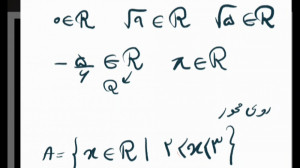 ۰∈ℝ √۹∈ℝ √۵∈ℝ
-۵/۶ ∈ℝ π∈ℝ
Q
روی محور
A={x∈ℝ | ۲<x<۳}